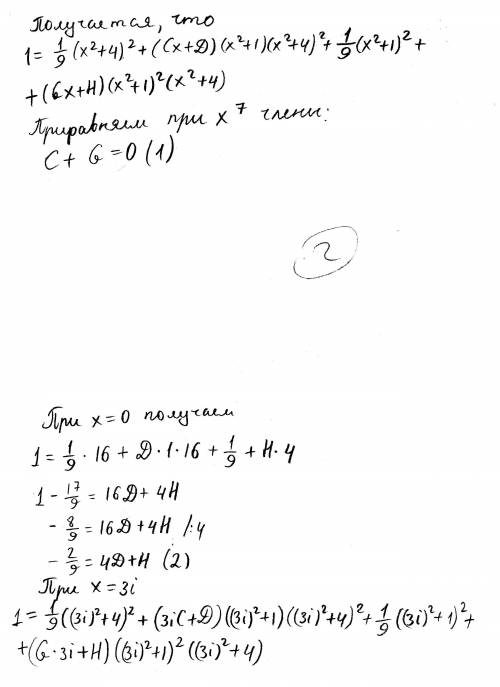 Получается, что
1 = 1/9 (x²+4)² + (Cx+D)(x²+1)(x²+4)² + 1/9 (x²+1)² +
+ (Gx+H)(x²+1)²(x²+4)
Приравняем при x⁷ члены:
C + G = 0 (1)
2
При x = 0 получаем
1 = 1/9 · 16 + D · 1 · 16 + 1/9 + H · 4
1 - 17/9 = 16D + 4H
- 8/9 = 16D + 4H /:4
- 2/9 = 4D + H (2)
При x = 3i
1 = 1/9 ((3i)²+4)² + (3iC+D)((3i)²+1)((3i)²+4)² + 1/9 ((3i)²+1)² +
+ (G·3i+H)((3i)²+1)²((3i)²+4)